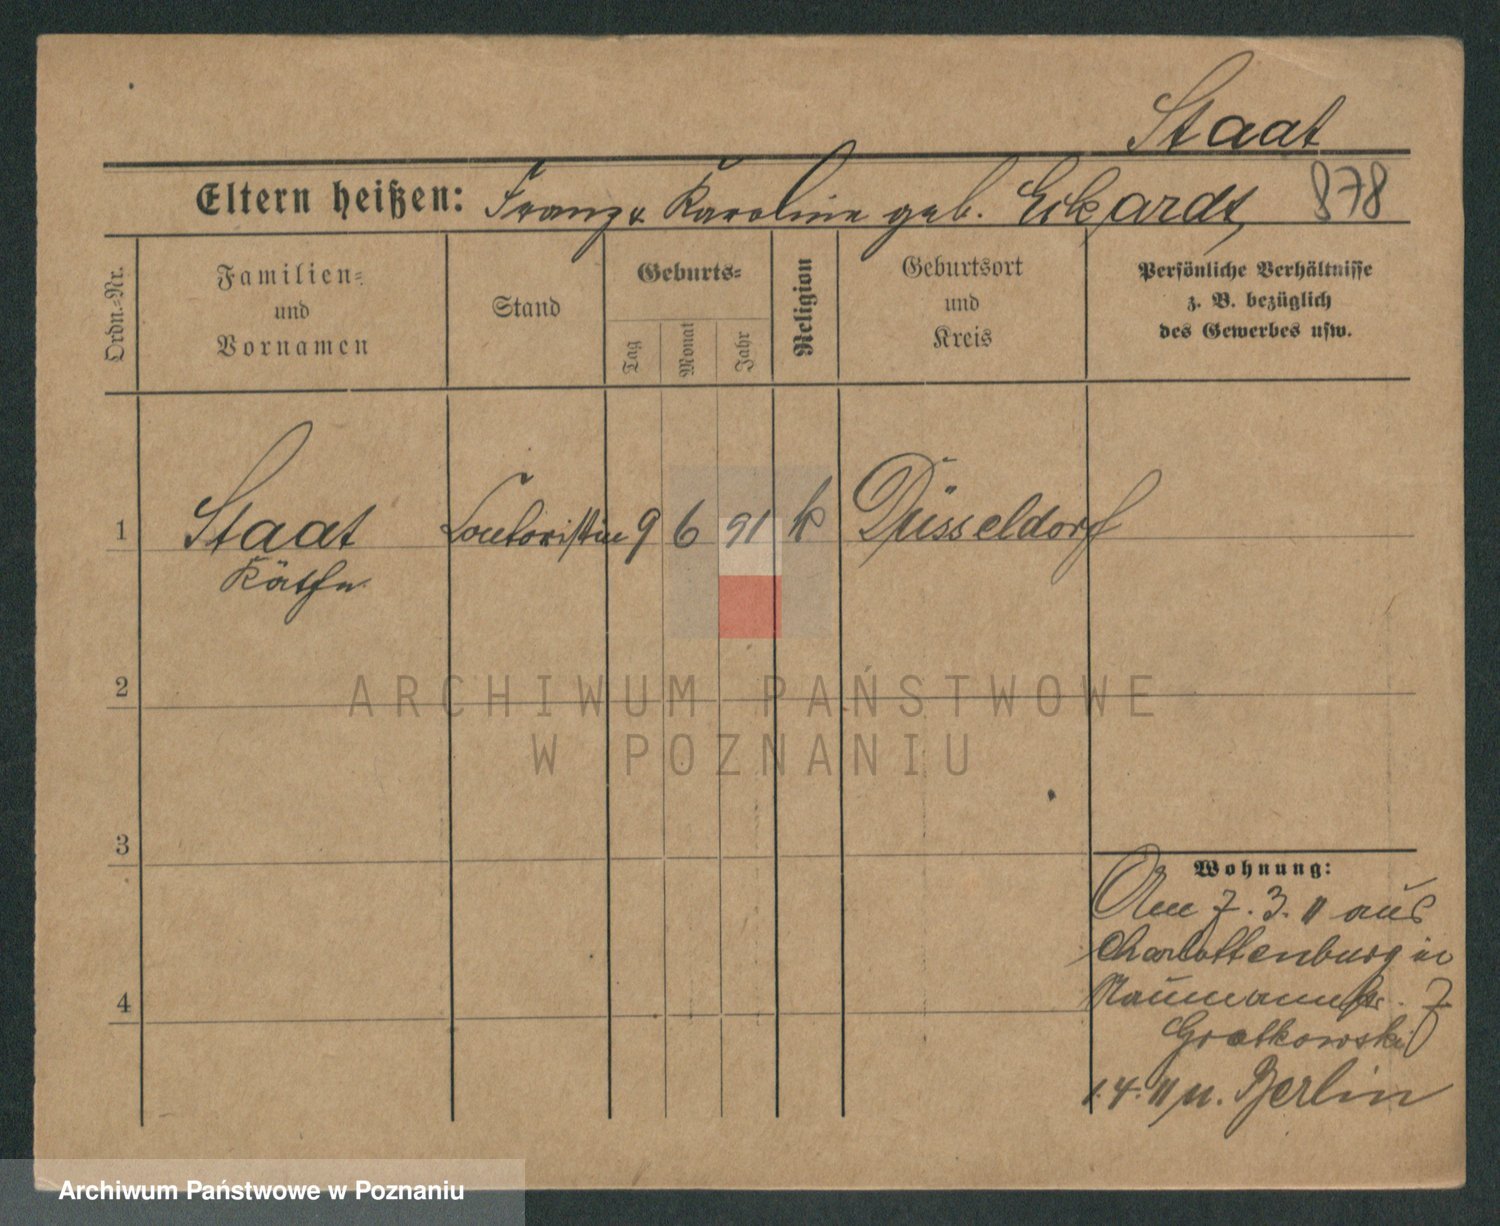 Staat
Eltern heißen: Franz u. Karoline geb. Eckardt 878
Ordn.-Nr.
Familien- und Vornamen
Stand
Geburts-
Tag
Monat
Jahr
Religion
Geburtsort und Kreis
Persönliche Verhältnisse
z. B. bezüglich
des Gewerbes usw.
1 Staat Kontoristin 9 6 91 k Düsseldorf
Käthe
2
3
4
Wohnung:
Am 7. 3. 11 aus
Charlottenburg in
Naumannstr. 7
Gratkowski
1. 4. 11 n. Berlin
ARCHIWUM PAŃSTWOWE
W POZNANIU
Archiwum Państwowe w Poznaniu